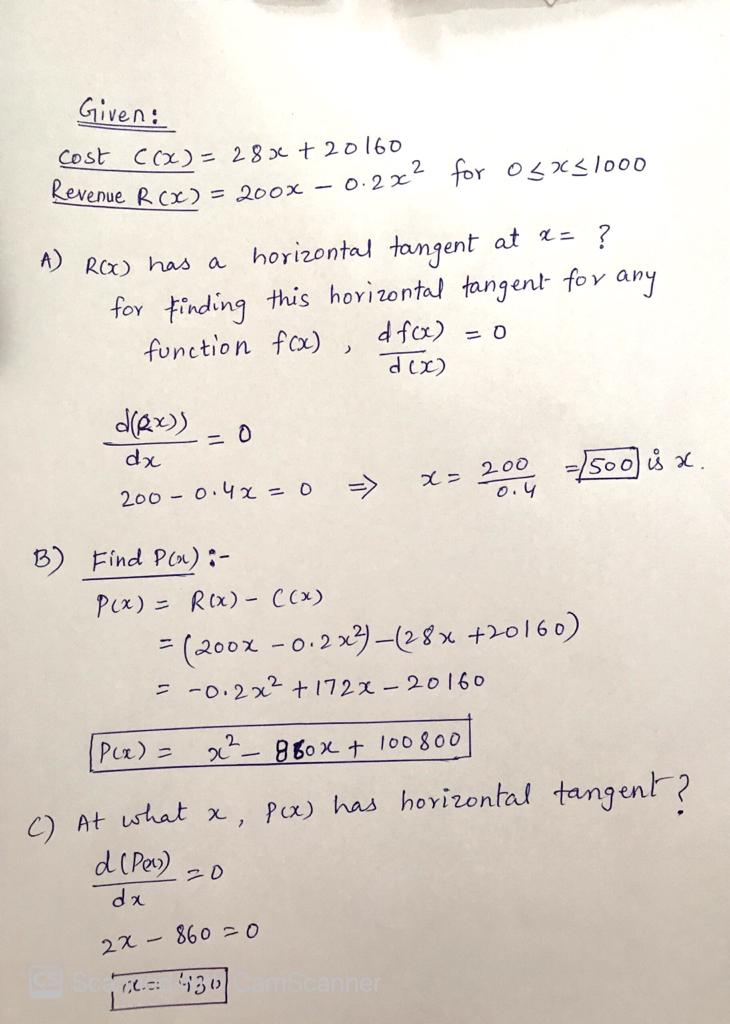 Given:
Cost C(x) = 28x + 20160
Revenue R(x) = 200x – 0.2x² for 0 ≤ x ≤ 1000
A) R(x) has a horizontal tangent at x = ?
for finding this horizontal tangent for any
function f(x), df(x)/d(x) = 0
d(Rx))/dx = 0
200 – 0.4x = 0 ⇒ x = 200/0.4 = 500 is x.
B) Find P(x) :-
P(x) = R(x) – C(x)
= (200x – 0.2x²) – (28x + 20160)
= -0.2x² + 172x – 20160
P(x) = x² – 860x + 100800
C) At what x, P(x) has horizontal tangent?
d(P(x))/dx = 0
2x – 860 = 0
x = 430
CS CamScanner